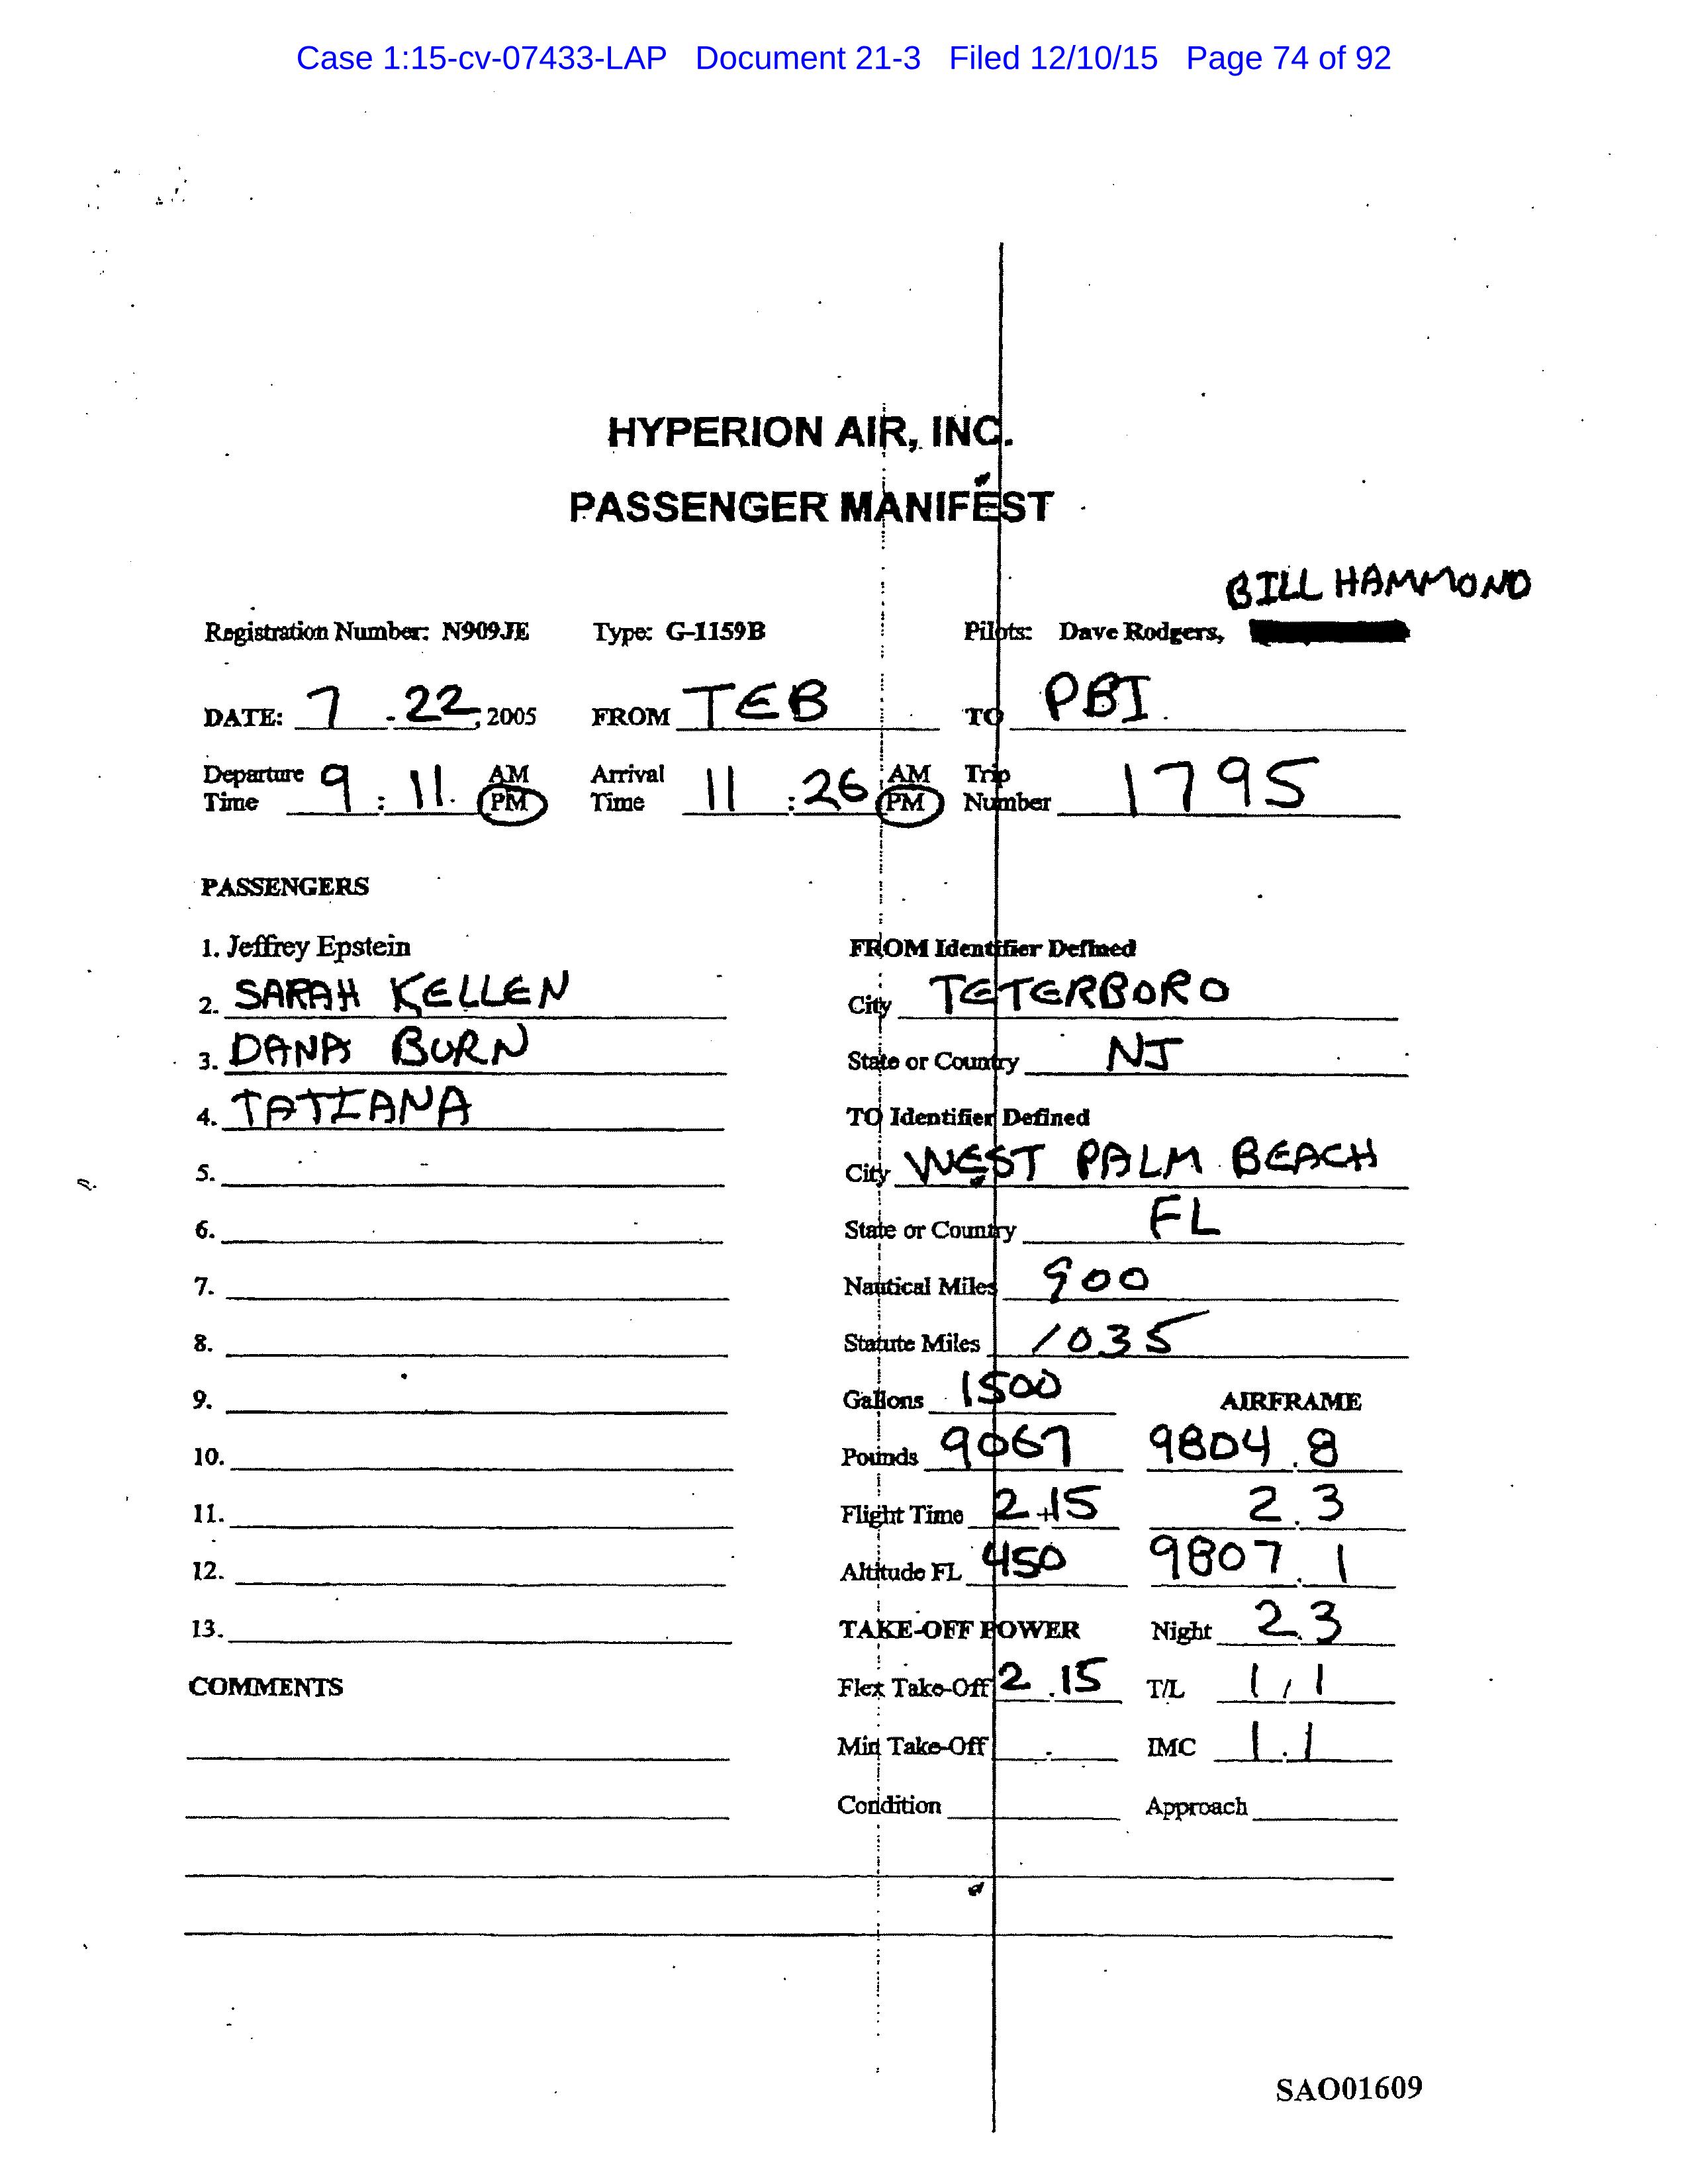 Case 1:15-cv-07433-LAP Document 21-3 Filed 12/10/15 Page 74 of 92
HYPERION AIR, INC.
PASSENGER MANIFEST
BILL HAMMOND
Registration Number: N909JE Type: G-1159B Pilots: Dave Rodgers,
DATE: 7 . 22, 2005 FROM TEB TO PBI
Departure Time 9 : 11 AM PM Arrival Time 11 : 26 AM PM Trip Number 1795
PASSENGERS
1. Jeffrey Epstein FROM Identifier Defined
2. SARAH KELLEN City TETERBORO
3. DANA BURN State or Country NJ
4. TATIANA TO Identifier Defined
5. City WEST PALM BEACH
6. State or Country FL
7. Nautical Miles 900
8. Statute Miles 1035
9. Gallons 1500 AIRFRAME
10. Pounds 9067 9804.8
11. Flight Time 2+15 2.3
12. Altitude FL 450 9807.1
13. TAKE-OFF POWER Night 2.3
COMMENTS Flex Take-Off 2.15 T/L 1/1
Min Take-Off . IMC 1.1
Condition Approach
SAO01609